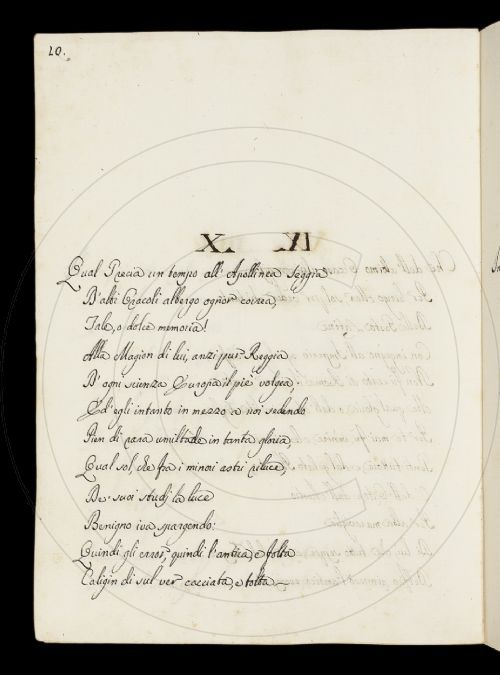 20.
X.
Qual Grecia un tempo all' Apollinea Seggia
D'altri Oracoli albergo ognor correa,
Tale, o dolce memoria!
Alla Magion di lui, anzi pur Reggia
D' ogni scienza Europa il piè volgea,
Ed' egli intanto in mezzo a noi sedendo
Pien di rara umiltade in tanta gloria,
Qual sol, che fra i minori astri riluce,
De' suoi studj la luce
Benigno iva spargendo:
Quindi gli error, quindi l'antica, e folta
Caligin di sul ver cacciata, e tolta